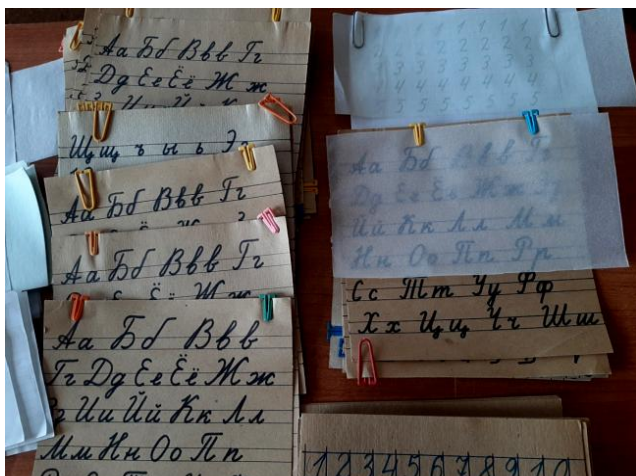 Аа Бб Ввв Гг
Дд Ее Ёё Жж
Щщ ъ ы ь Ээ
Аа Бб Ввв Гг
Аа Бб Ввв Гг
Аа Бб Ввв
Гг Дд Ее Ёё Жж
Зз Ии Йй Кк Лл
Мм Нн Оо Пп
1 1 1 1 1 1
2 2 2 2 2 2
3 3 3 3 3 3
4 4 4 4 4 4
5 5 5 5 5 5
Аа Бб Ввв Гг
Дд Ее Ёё Жж Зз
Ии Йй Кк Лл Мм
Нн Оо Пп Рр
Сс Тт Уу Фф
Хх Цц Чч Шш
1 2 3 4 5 6 7 8 9 10